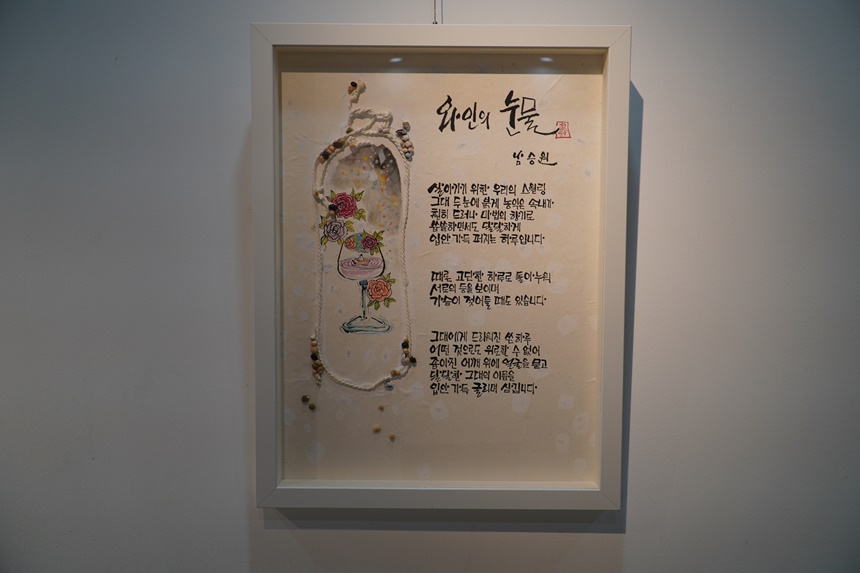 와인의 눈물
남승원
살아가기 위한 우리의 스월링
그대 두 눈에 붉게 농익은 속내가
훤히 드러나 마법의 향기로
쌉쌀하면서도 달달하게
입안 가득 퍼지는 하루입니다
때론 고단한 하루로 돌아누워
서로의 등을 보이며
가슴이 젖어들 때도 있습니다
그대에게 드리워진 쓴 하루
어떤 것으로도 위로할 수 없어
좁아진 어깨 위에 얼굴을 묻고
달달한 그대의 이름을
입안 가득 굴리며 삼킵니다